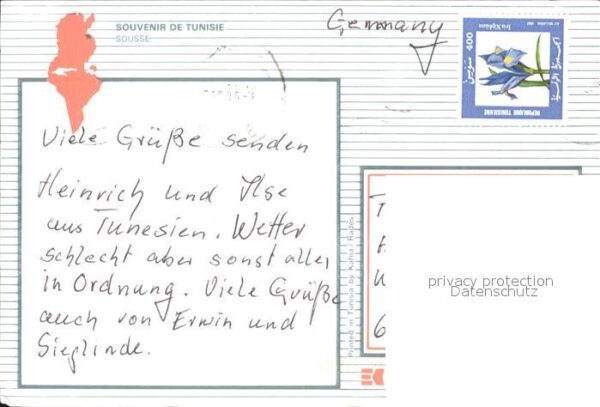 SOUVENIR DE TUNISIE
SOUSSE
Germany
Iris Xiphium
400
REPUBLIQUE TUNISIENNE
Viele Grüße senden
Heinrich und Ilse
aus Tunesien. Wetter
schlecht aber sonst alles
in Ordnung. Viele Grüße
auch von Erwin und
Sieglinde.
Printed in Tunisia by Kahia / Rades
privacy protection
Datenschutz